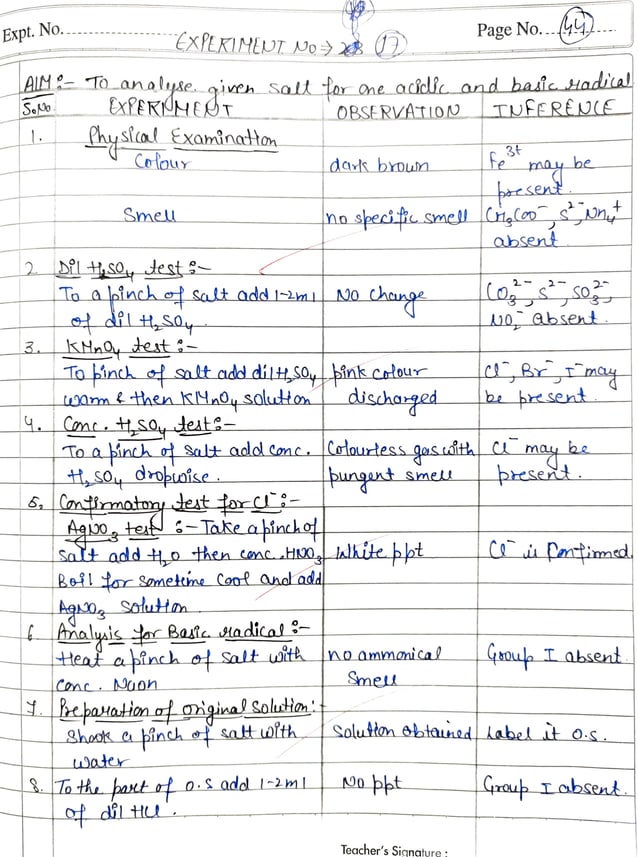 Expt. No.
EXPERIMENT No → 17
Page No. 44
AIM :- To analyse given salt for one acidic and basic radical
S.No. EXPERNMENT OBSERVATION INFERENCE
1. Physical Examination
Colour dark brown Fe³⁺ may be
present.
Smell no specific smell CH₃COO⁻, S²⁻, NH₄⁺
absent.
2. Dil H₂SO₄ test :-
To a pinch of salt add 1-2ml No change CO₃²⁻, S²⁻, SO₃²⁻,
of dil H₂SO₄. NO₂⁻ absent.
3. KMnO₄ test :-
To pinch of salt add dil H₂SO₄ pink colour Cl⁻, Br⁻, I⁻ may
warm & then KMnO₄ solution discharged be present.
4. Conc. H₂SO₄ test :-
To a pinch of salt add conc. Colourless gas with Cl⁻ may be
H₂SO₄ dropwise. pungent smell present.
5. Confirmatory test for Cl⁻ :-
AgNO₃ test :- Take a pinch of
salt add H₂O then conc. HNO₃ White ppt Cl⁻ is Confirmed.
Boil for sometime cool and add
AgNO₃ solution.
6. Analysis for Basic radical :-
Heat a pinch of salt with no ammonical Group I absent.
conc. NaOH Smell
7. Preparation of original solution :-
Shook a pinch of salt with Solution obtained Label it O.S.
water
8. To the part of O.S add 1-2ml No ppt Group I absent.
of dil HCl.
Teacher's Signature :